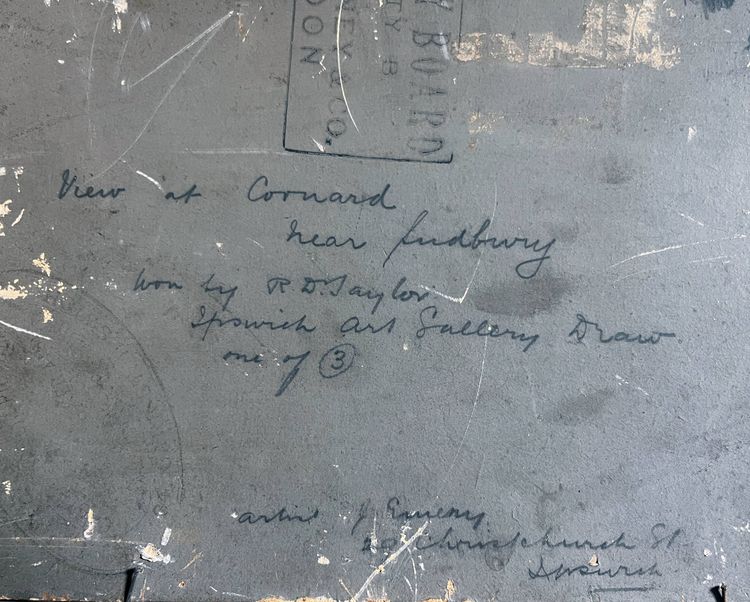 BOARD
TY B
NEY & CO.
DON
View at Cornard
near Sudbury
Won by R. D. Taylor,
Ipswich Art Gallery Draw
one of 3
artist J Emery
20 Christchurch St
Ipswich